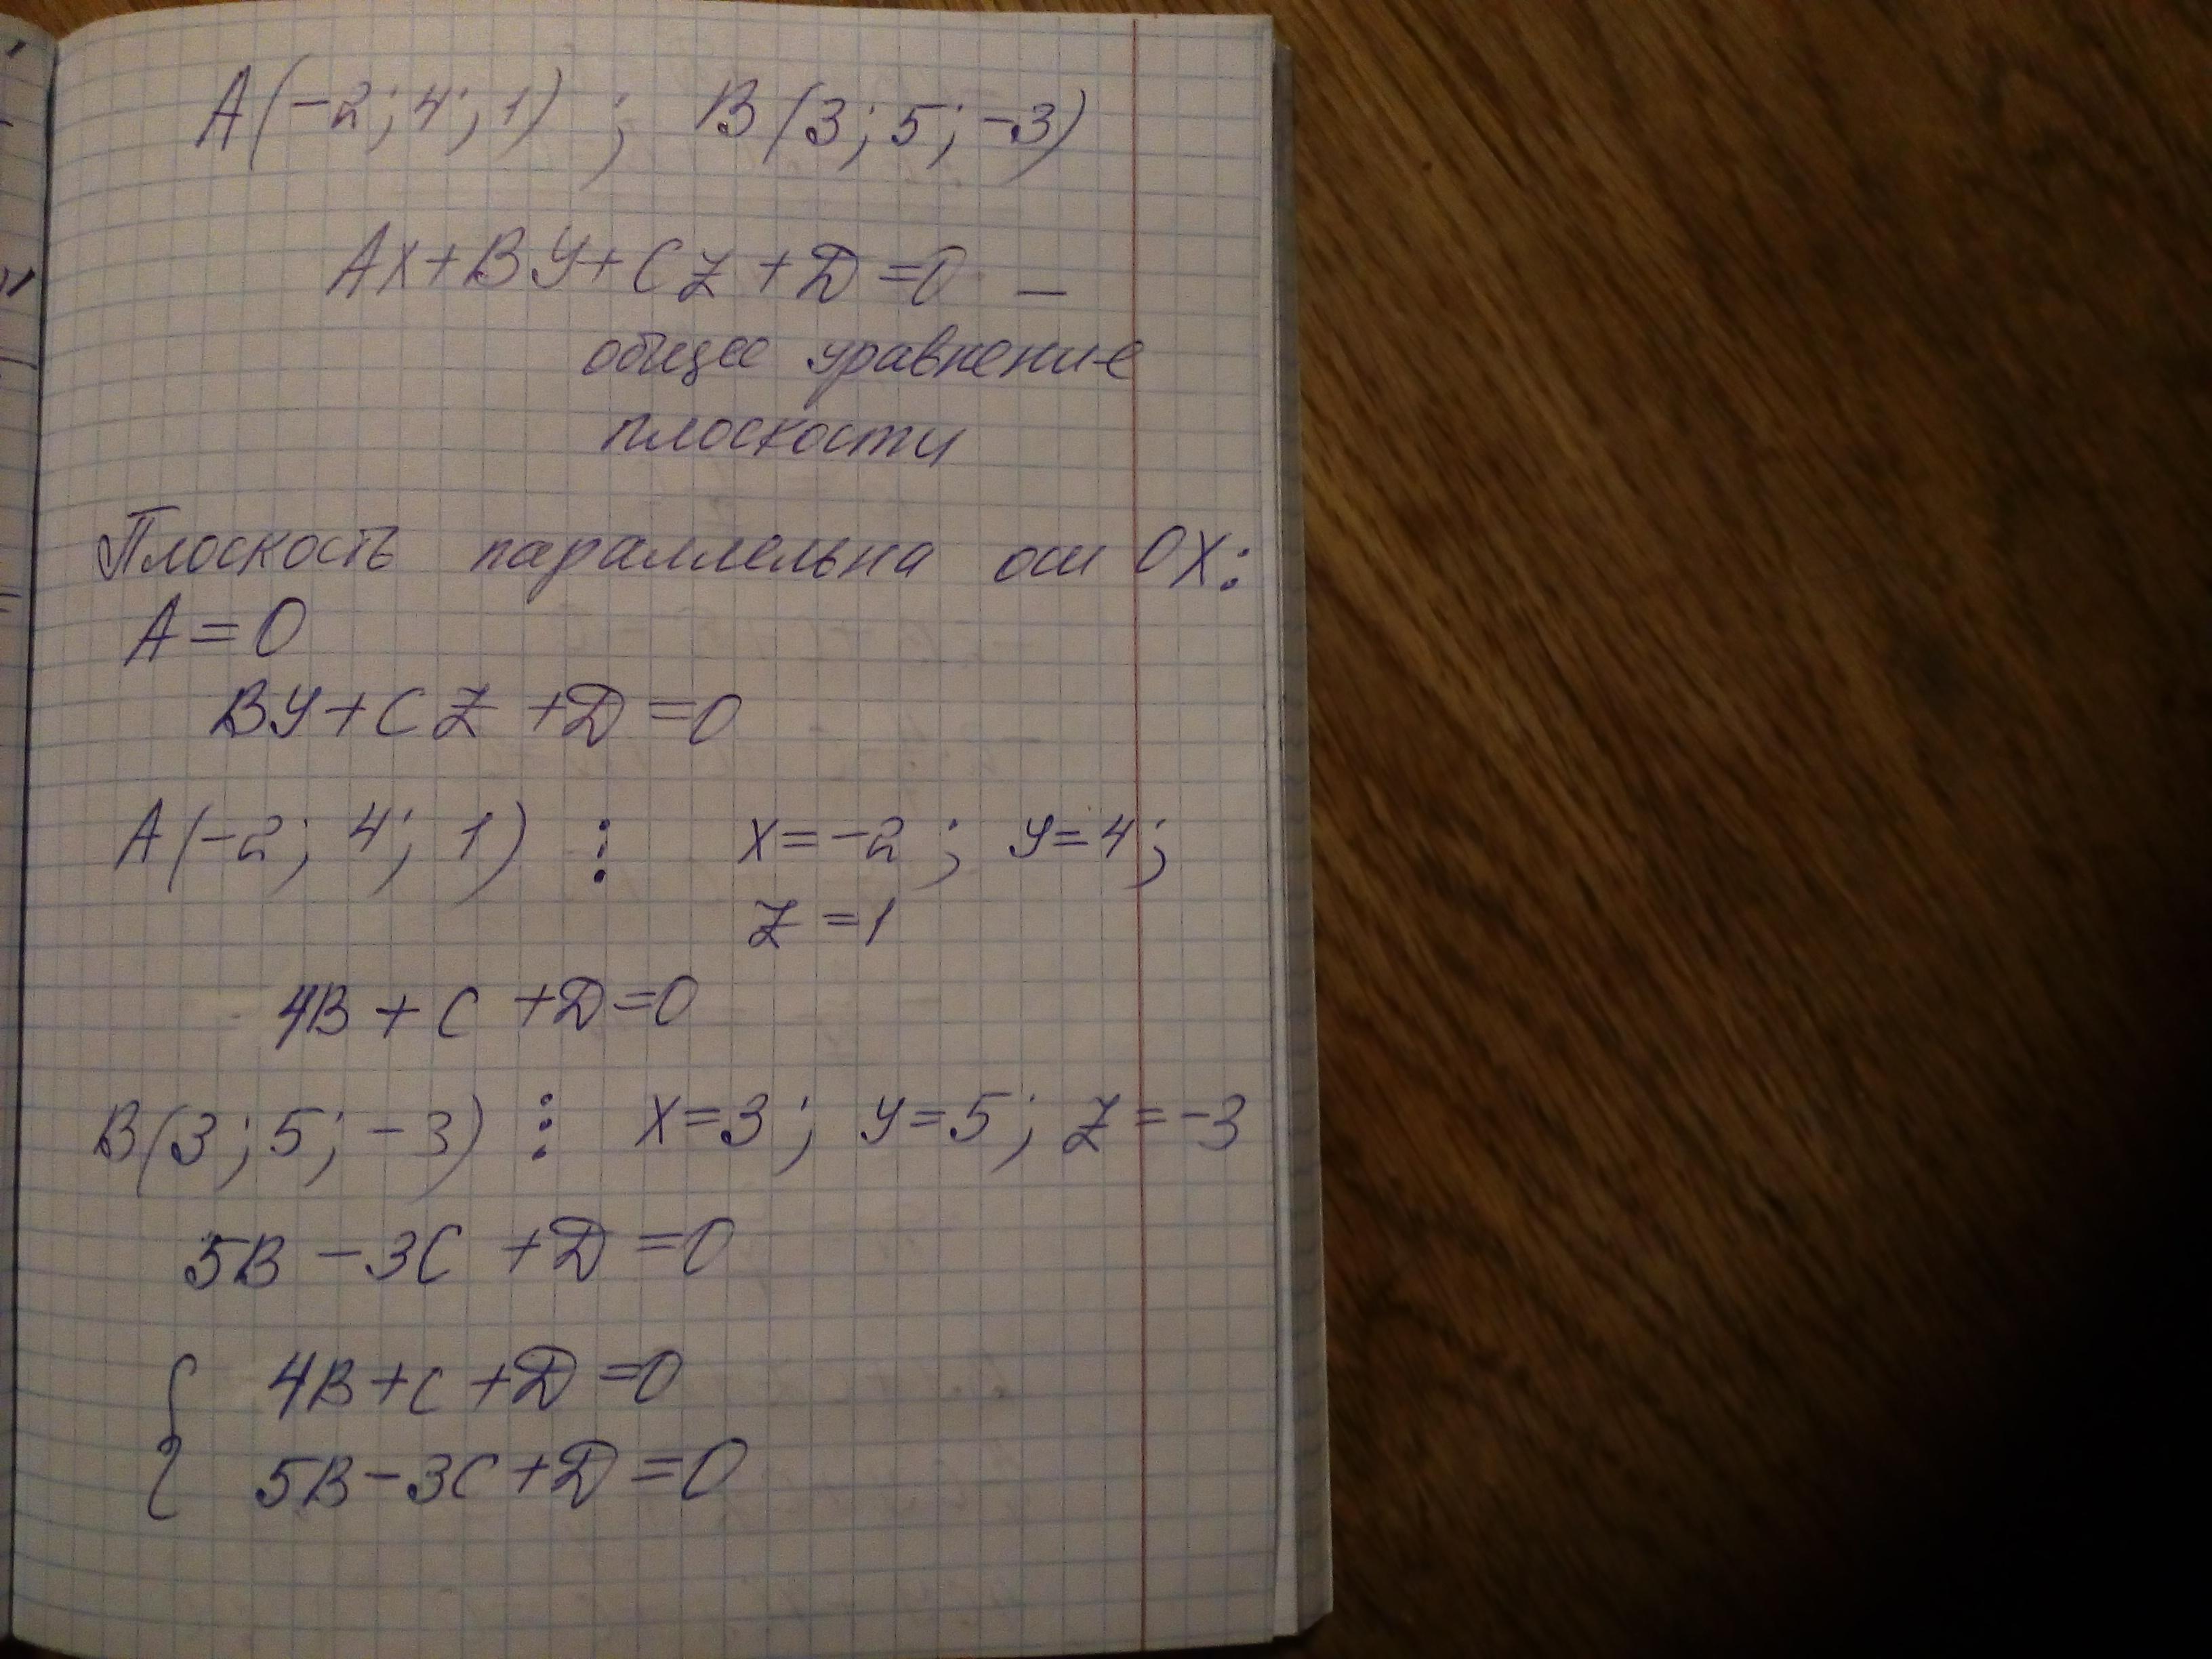 A(-2; 4; 1) ; B(3; 5; -3)
AX+BY+CZ+D=0 —
общее уравнение
плоскости
Плоскость параллельна оси OX:
A=0
BY+CZ+D=0
A(-2; 4; 1) : X=-2; Y=4;
Z=1
4B+C+D=0
B(3; 5; -3) : X=3; Y=5; Z=-3
5B-3C+D=0
{ 4B+C+D=0
5B-3C+D=0